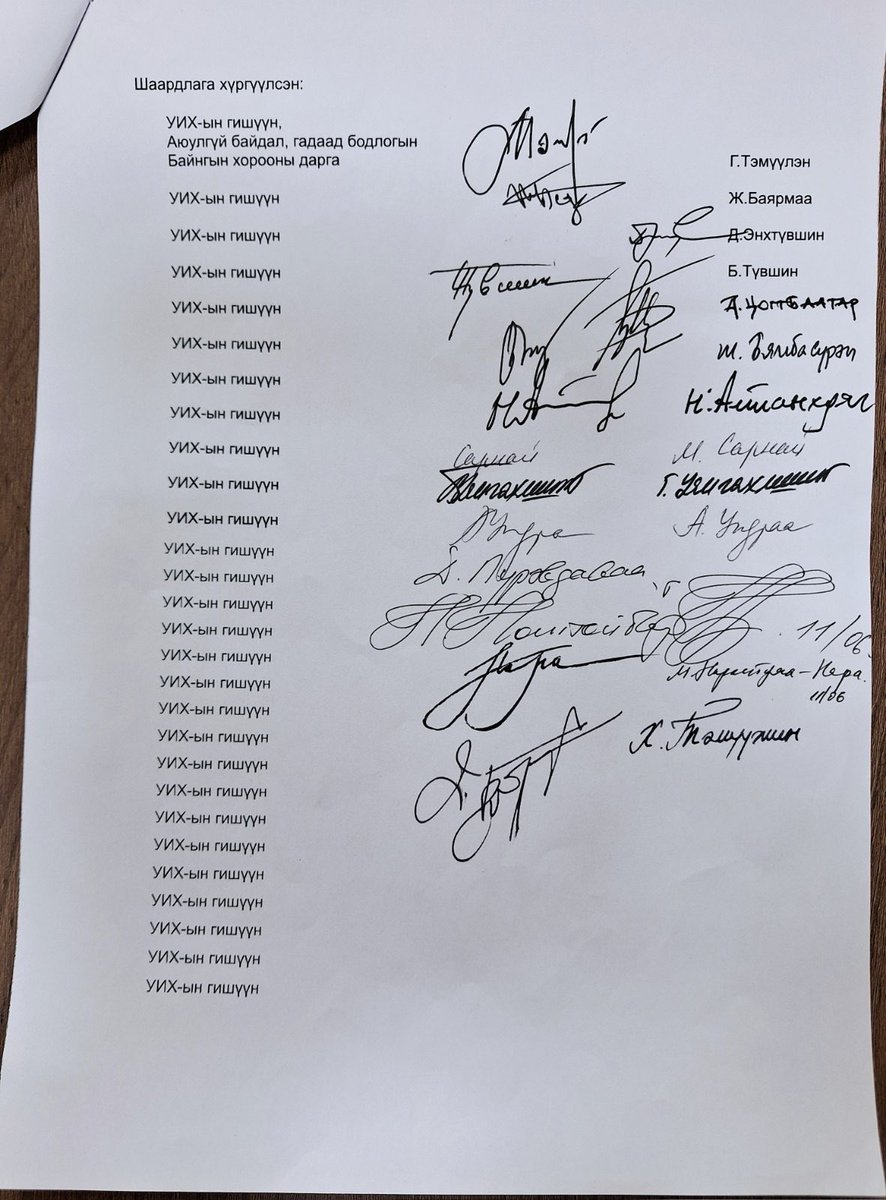 Шаардлага хүргүүлсэн:
УИХ-ын гишүүн,
Аюулгүй байдал, гадаад бодлогын
Байнгын хорооны дарга Г.Тэмүүлэн
УИХ-ын гишүүн Ж.Баярмаа
УИХ-ын гишүүн Д.Энхтүвшин
УИХ-ын гишүүн Түвшин Б.Түвшин
УИХ-ын гишүүн Д.Цогтбаатар
УИХ-ын гишүүн Ж. Бямбасүрэн
УИХ-ын гишүүн
УИХ-ын гишүүн Н.Алтаншагай
УИХ-ын гишүүн Сарнай М. Сарнай
УИХ-ын гишүүн Г. Уянгахишиг
УИХ-ын гишүүн А. Ундраа
УИХ-ын гишүүн
УИХ-ын гишүүн Д. Пүрэвдаваа
УИХ-ын гишүүн
УИХ-ын гишүүн 11/06
УИХ-ын гишүүн Нара М. Нарантуяа-Нара
УИХ-ын гишүүн 11/06
УИХ-ын гишүүн
УИХ-ын гишүүн Х. Тэмүжин
УИХ-ын гишүүн
УИХ-ын гишүүн
УИХ-ын гишүүн
УИХ-ын гишүүн
УИХ-ын гишүүн
УИХ-ын гишүүн
УИХ-ын гишүүн
УИХ-ын гишүүн
УИХ-ын гишүүн